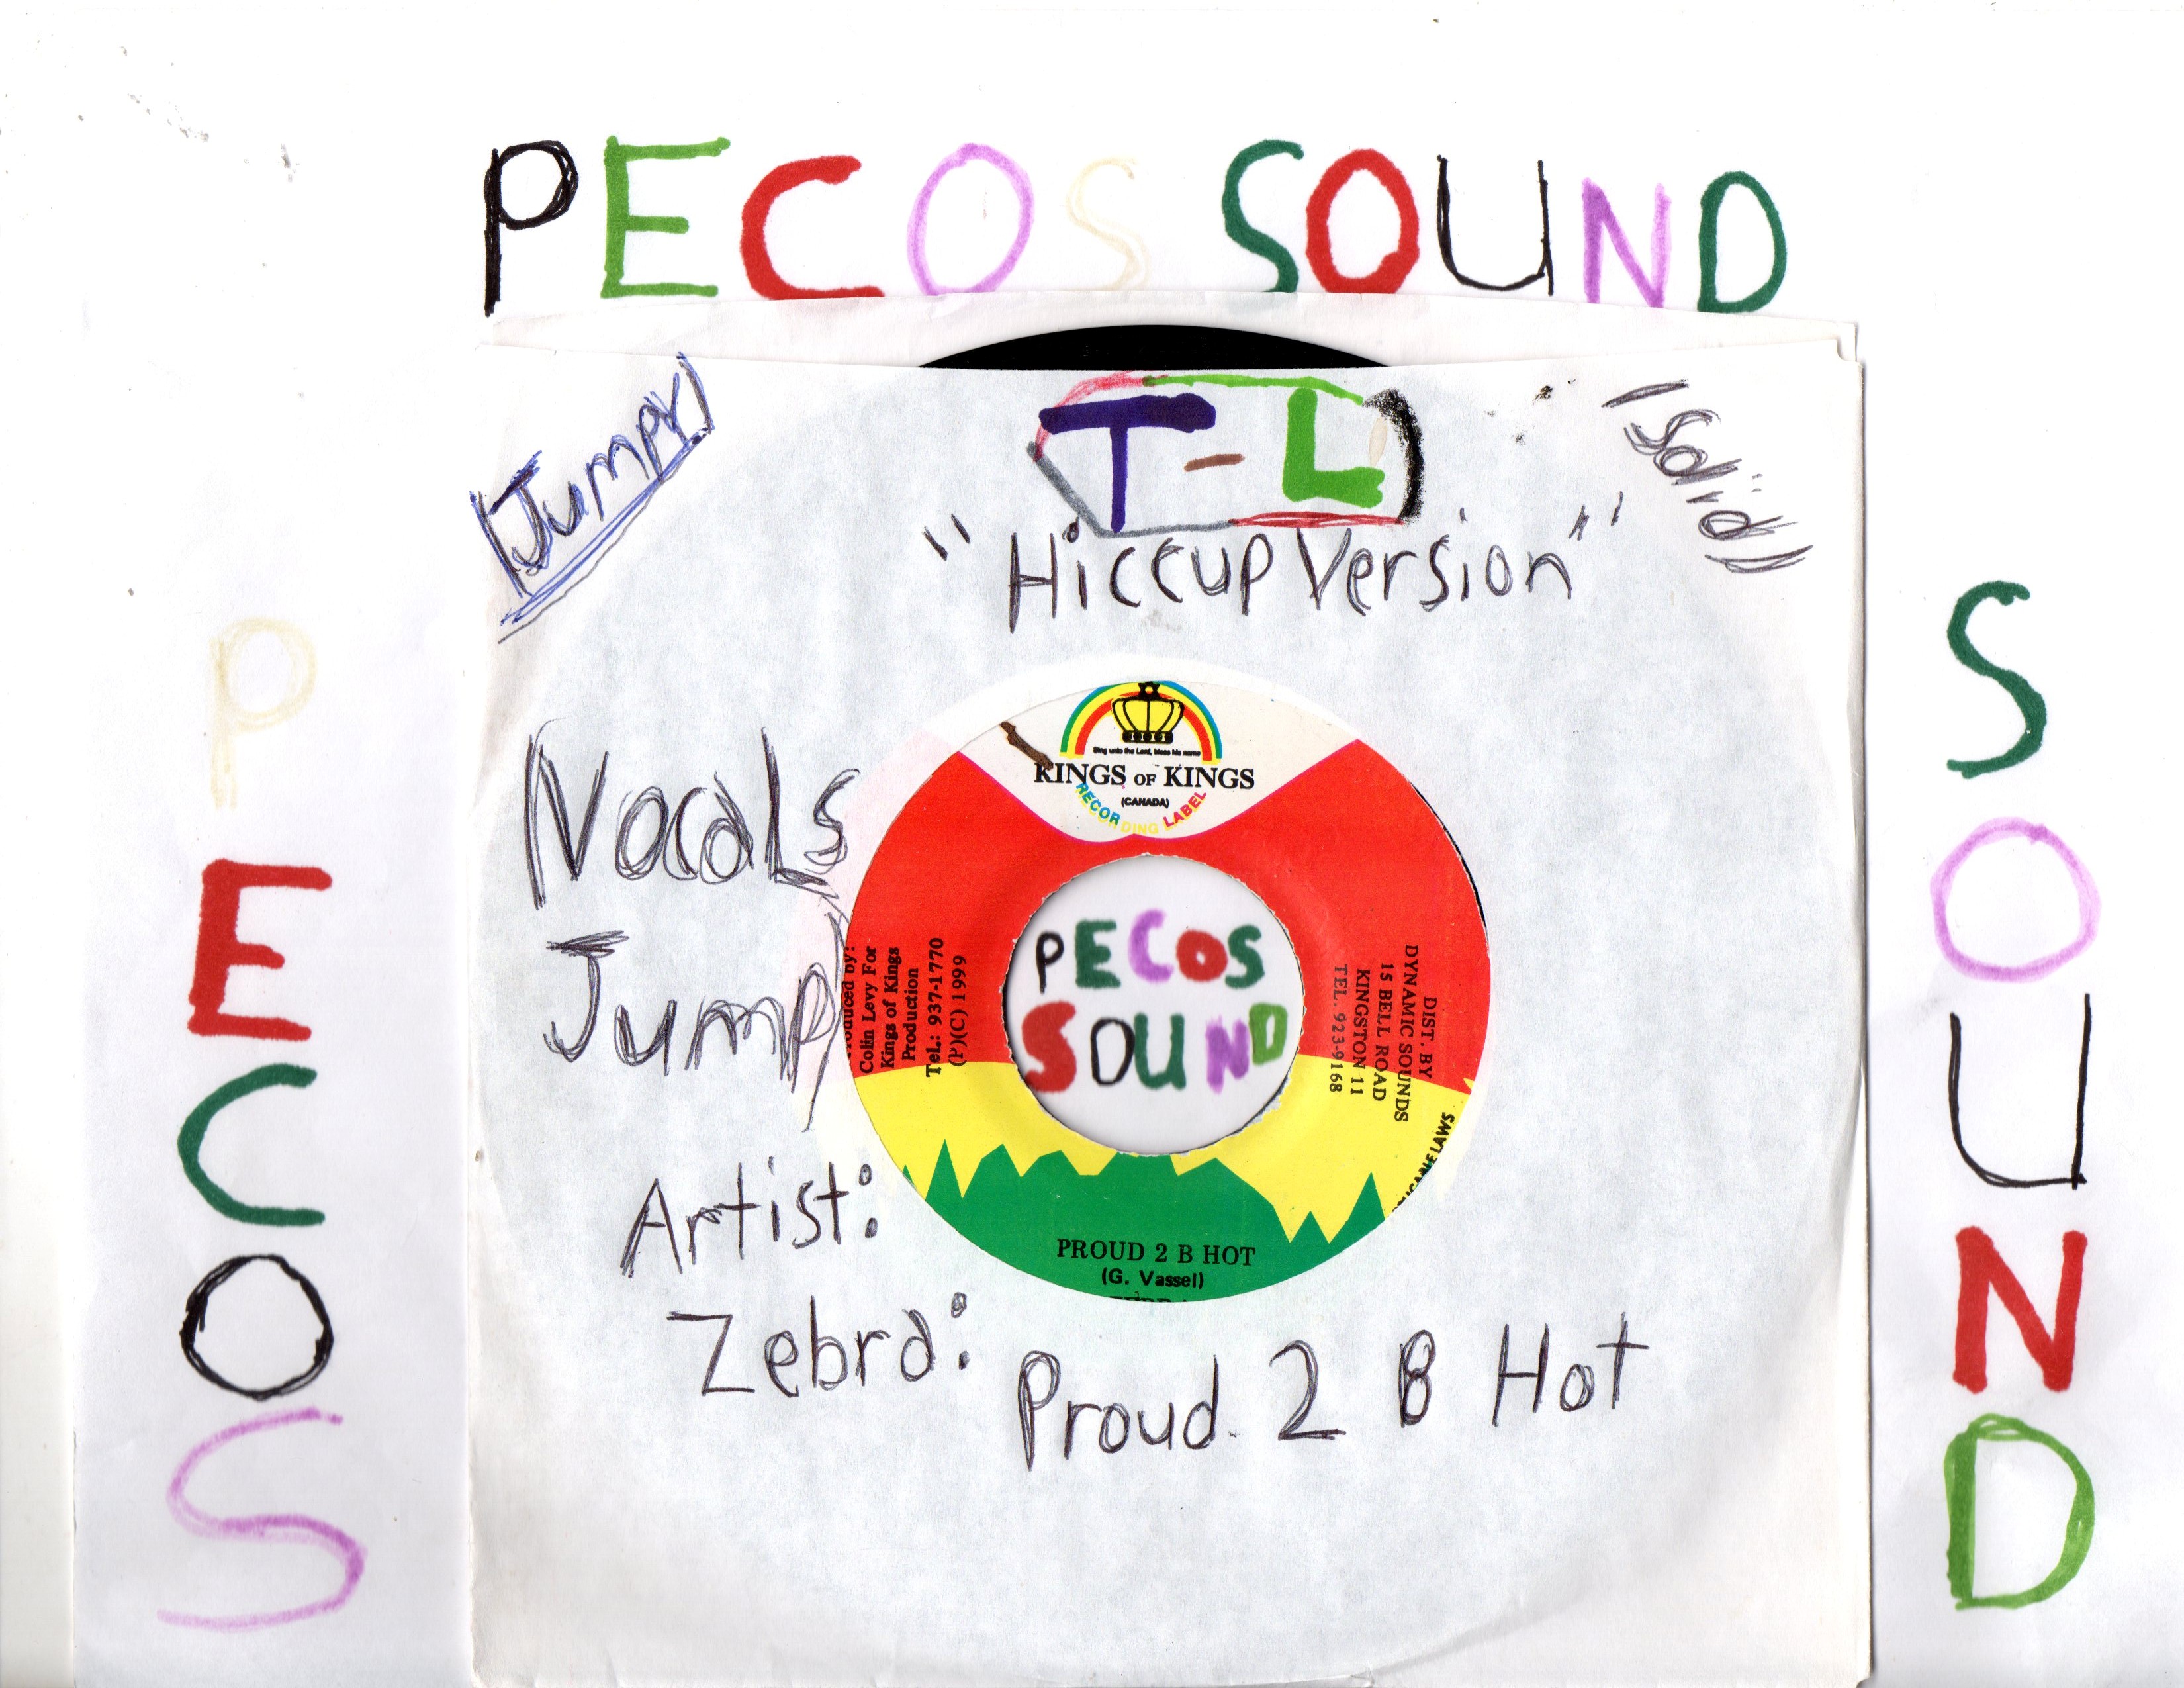 PECOS SOUND
(Jumpy)
T-L
(Solid)
"Hiccup Version"
PECOS
SOUND
Vocals
Jump
Artist:
Zebra:
Proud 2 B Hot
Sing unto the Lord, bless his name
KINGS OF KINGS
(CANADA)
RECORDING LABEL
Produced by:
Colin Levy For
Kings of Kings
Production
Tel.: 937-1770
(P)(C) 1999
PECOS
SOUND
DIST. BY
DYNAMIC SOUNDS
15 BELL ROAD
KINGSTON 11
TEL. 923-9168
LAWS
PROUD 2 B HOT
(G. Vassel)